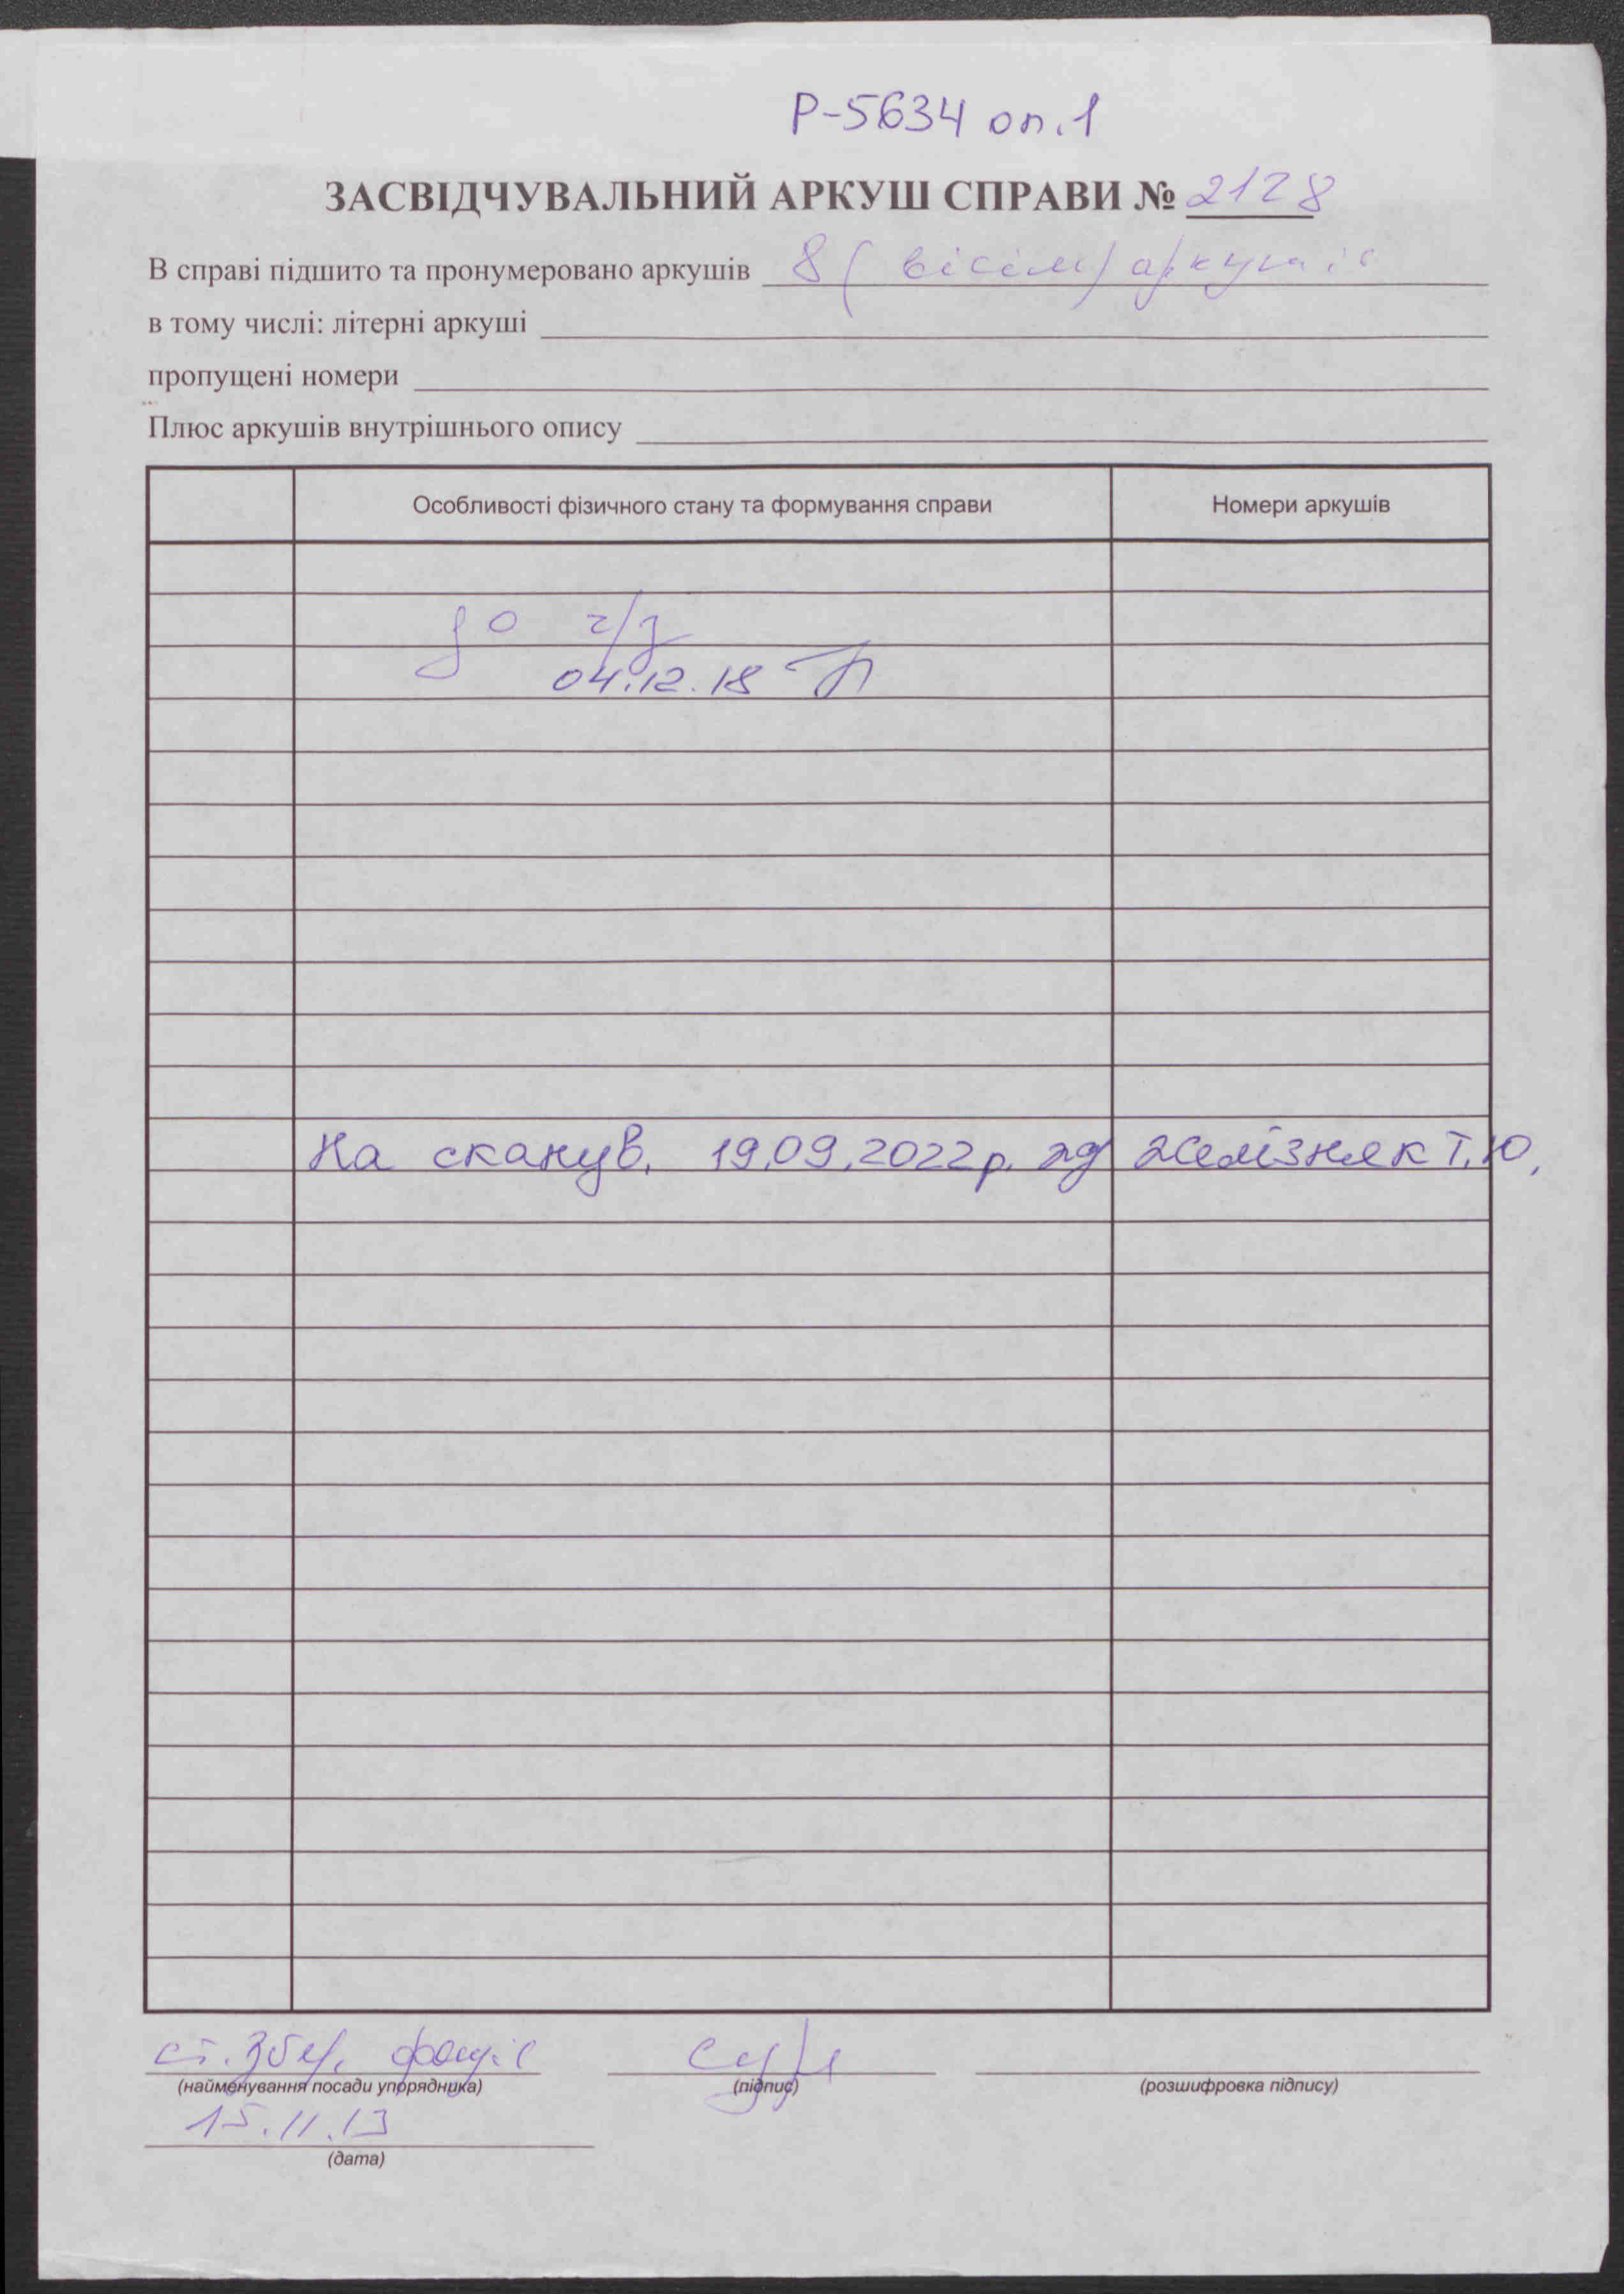 Р-5634 оп.1
ЗАСВІДЧУВАЛЬНИЙ АРКУШ СПРАВИ № 2128
В справі підшито та пронумеровано аркушів 8 (вісім) аркушів
в тому числі: літерні аркуші
пропущені номери
Плюс аркушів внутрішнього опису
Особливості фізичного стану та формування справи Номери аркушів
до ч/з
04.12.18
На сканув. 19.09.2022р. Желізняк Т.Ю.
ст. збер. фондів
(найменування посади упорядника) (підпис) (розшифровка підпису)
15.11.13
(дата)